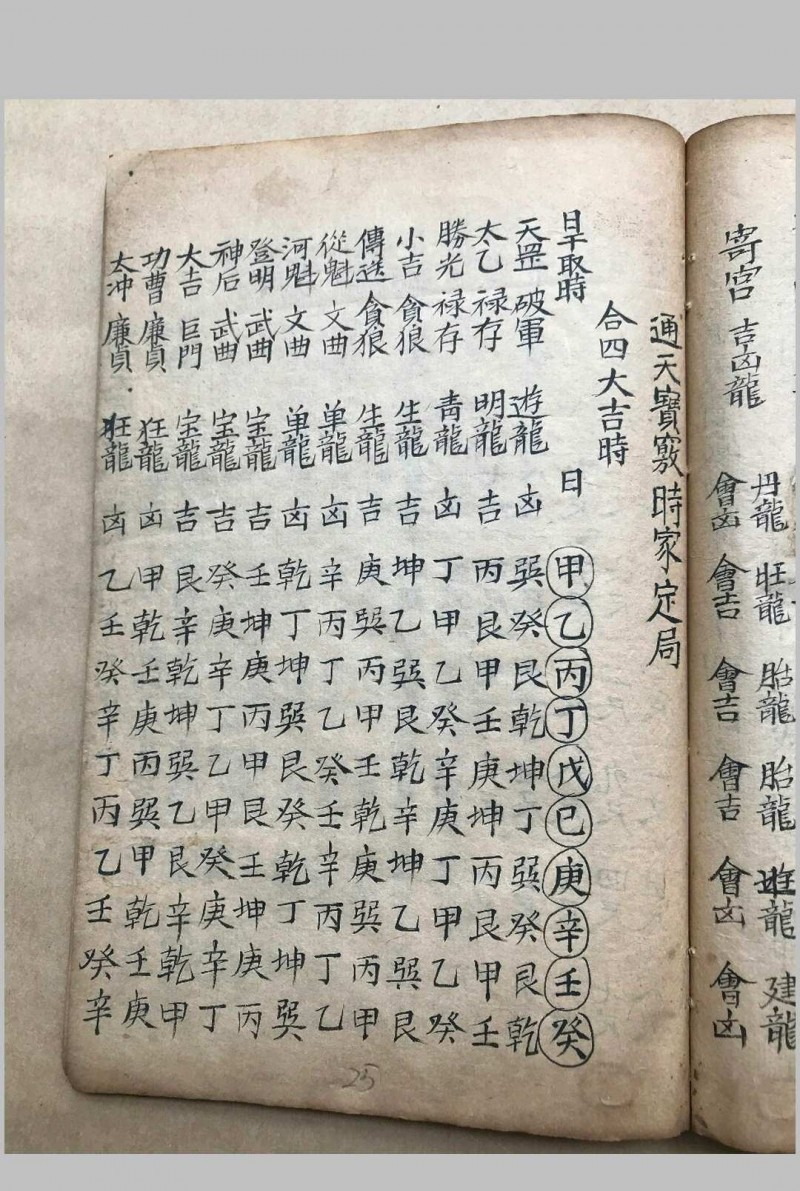 丹龍 旺龍 胎龍 胎龍 遊龍 建龍
寄宮 吉凶龍 會凶 會吉 會吉 會吉 會凶 會凶
通天寶竅時家定局
合四大吉時
日干取時 日 甲 乙 丙 丁 戊 巳 庚 辛 壬 癸
天罡 破軍 遊龍 凶 巽 癸 艮 乾 坤 丁 巽 癸 艮 乾
太乙 禄存 明龍 吉 丙 艮 甲 壬 庚 坤 丙 艮 甲 壬
勝光 禄存 青龍 凶 丁 甲 乙 癸 辛 庚 丁 甲 乙 癸
小吉 貪狼 生龍 吉 坤 乙 巽 艮 乾 辛 坤 乙 巽 艮
傳送 貪狼 生龍 吉 庚 巽 丙 甲 壬 乾 庚 巽 丙 甲
從魁 文曲 单龍 凶 辛 丙 丁 乙 癸 壬 辛 丙 丁 乙
河魁 文曲 单龍 凶 乾 丁 坤 巽 艮 癸 乾 丁 坤 巽
登明 武曲 宝龍 吉 壬 坤 庚 丙 甲 艮 壬 坤 庚 丙
神后 武曲 宝龍 吉 癸 庚 辛 丁 乙 甲 癸 庚 辛 丁
大吉 巨門 宝龍 吉 艮 辛 乾 坤 巽 乙 艮 辛 乾 甲
功曹 廉貞 狂龍 凶 甲 乾 壬 庚 丙 巽 甲 乾 壬 庚
太冲 廉貞 狂龍 凶 乙 壬 癸 辛 丁 丙 乙 壬 癸 辛
25